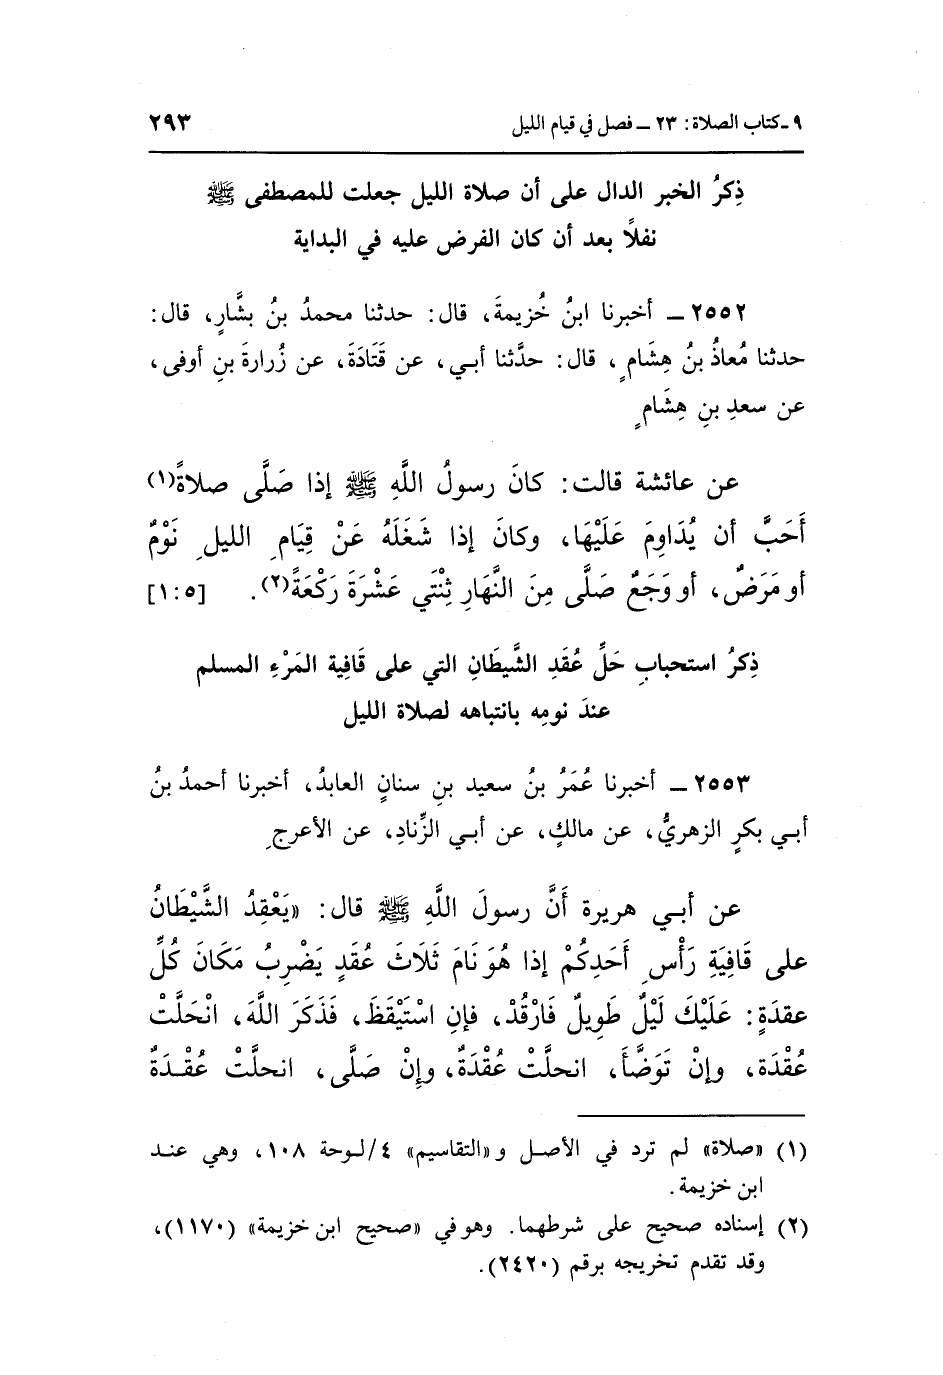 ٩ - كتاب الصلاة: ٢٣ – فصل في قيام الليل ٢٩٣
ذِكرُ الخبر الدال على أن صلاة الليل جعلت للمصطفى ﷺ
نفلاً بعد أن كان الفرض عليه في البداية
٢٥٥٢ – أخبرنا ابنُ خُزيمةَ، قال: حدثنا محمدُ بنُ بشَّارٍ، قال:
حدثنا مُعاذُ بنُ هِشَامٍ، قال: حدَّثنا أبي، عن قَتَادَةَ، عن زُرارةَ بنِ أوفى،
عن سعدِ بنِ هِشَامٍ
عن عائشة قالت: كانَ رسولُ اللَّهِ ﷺ إذا صَلَّى صلاةً(١)
أَحَبَّ أن يُدَاوِمَ عَلَيْهَا، وكانَ إذا شَغَلَهُ عَنْ قِيَامِ الليلِ نَوْمٌ
أو مَرَضٌ، أو وَجَعٌ صَلَّى مِنَ النَّهَارِ ثِنْتَي عَشْرَةَ رَكْعَةً(٢). [١:٥]
ذِكرُ استحبابِ حَلِّ عُقَدِ الشَّيطَانِ التي على قَافِية المَرْءِ المسلم
عندَ نومِه بانتباهه لصلاة الليل
٢٥٥٣ – أخبرنا عُمَرُ بنُ سعيد بنِ سنانٍ العابدُ، أخبرنا أحمدُ بنُ
أبي بكرٍ الزهريُّ، عن مالكٍ، عن أبي الزِّنادِ، عن الأعرجِ
عن أبي هريرة أَنَّ رسولَ اللَّهِ ﷺ قال: «يَعْقِدُ الشَّيْطَانُ
على قَافِيَةِ رَأْسِ أَحَدِكُمْ إذا هُوَ نَامَ ثَلَاثَ عُقَدٍ يَضْرِبُ مَكَانَ كُلِّ
عقدَةٍ: عَلَيْكَ لَيْلٌ طَوِيلٌ فَارْقُدْ، فإنِ اسْتَيْقَظَ، فَذَكَرَ اللَّهَ، انْحَلَّتْ
عُقْدَة، وإنْ تَوَضَّأَ، انحلَّتْ عُقْدَةٌ، وإِنْ صَلَّى، انحلَّتْ عُقْدَةٌ
(١) «صلاة» لم ترد في الأصل و«التقاسيم» ٤/لوحة ١٠٨، وهي عند
ابن خزيمة.
(٢) إسناده صحيح على شرطهما. وهو في «صحيح ابن خزيمة» (١١٧٠)،
وقد تقدم تخريجه برقم (٢٤٢٠).